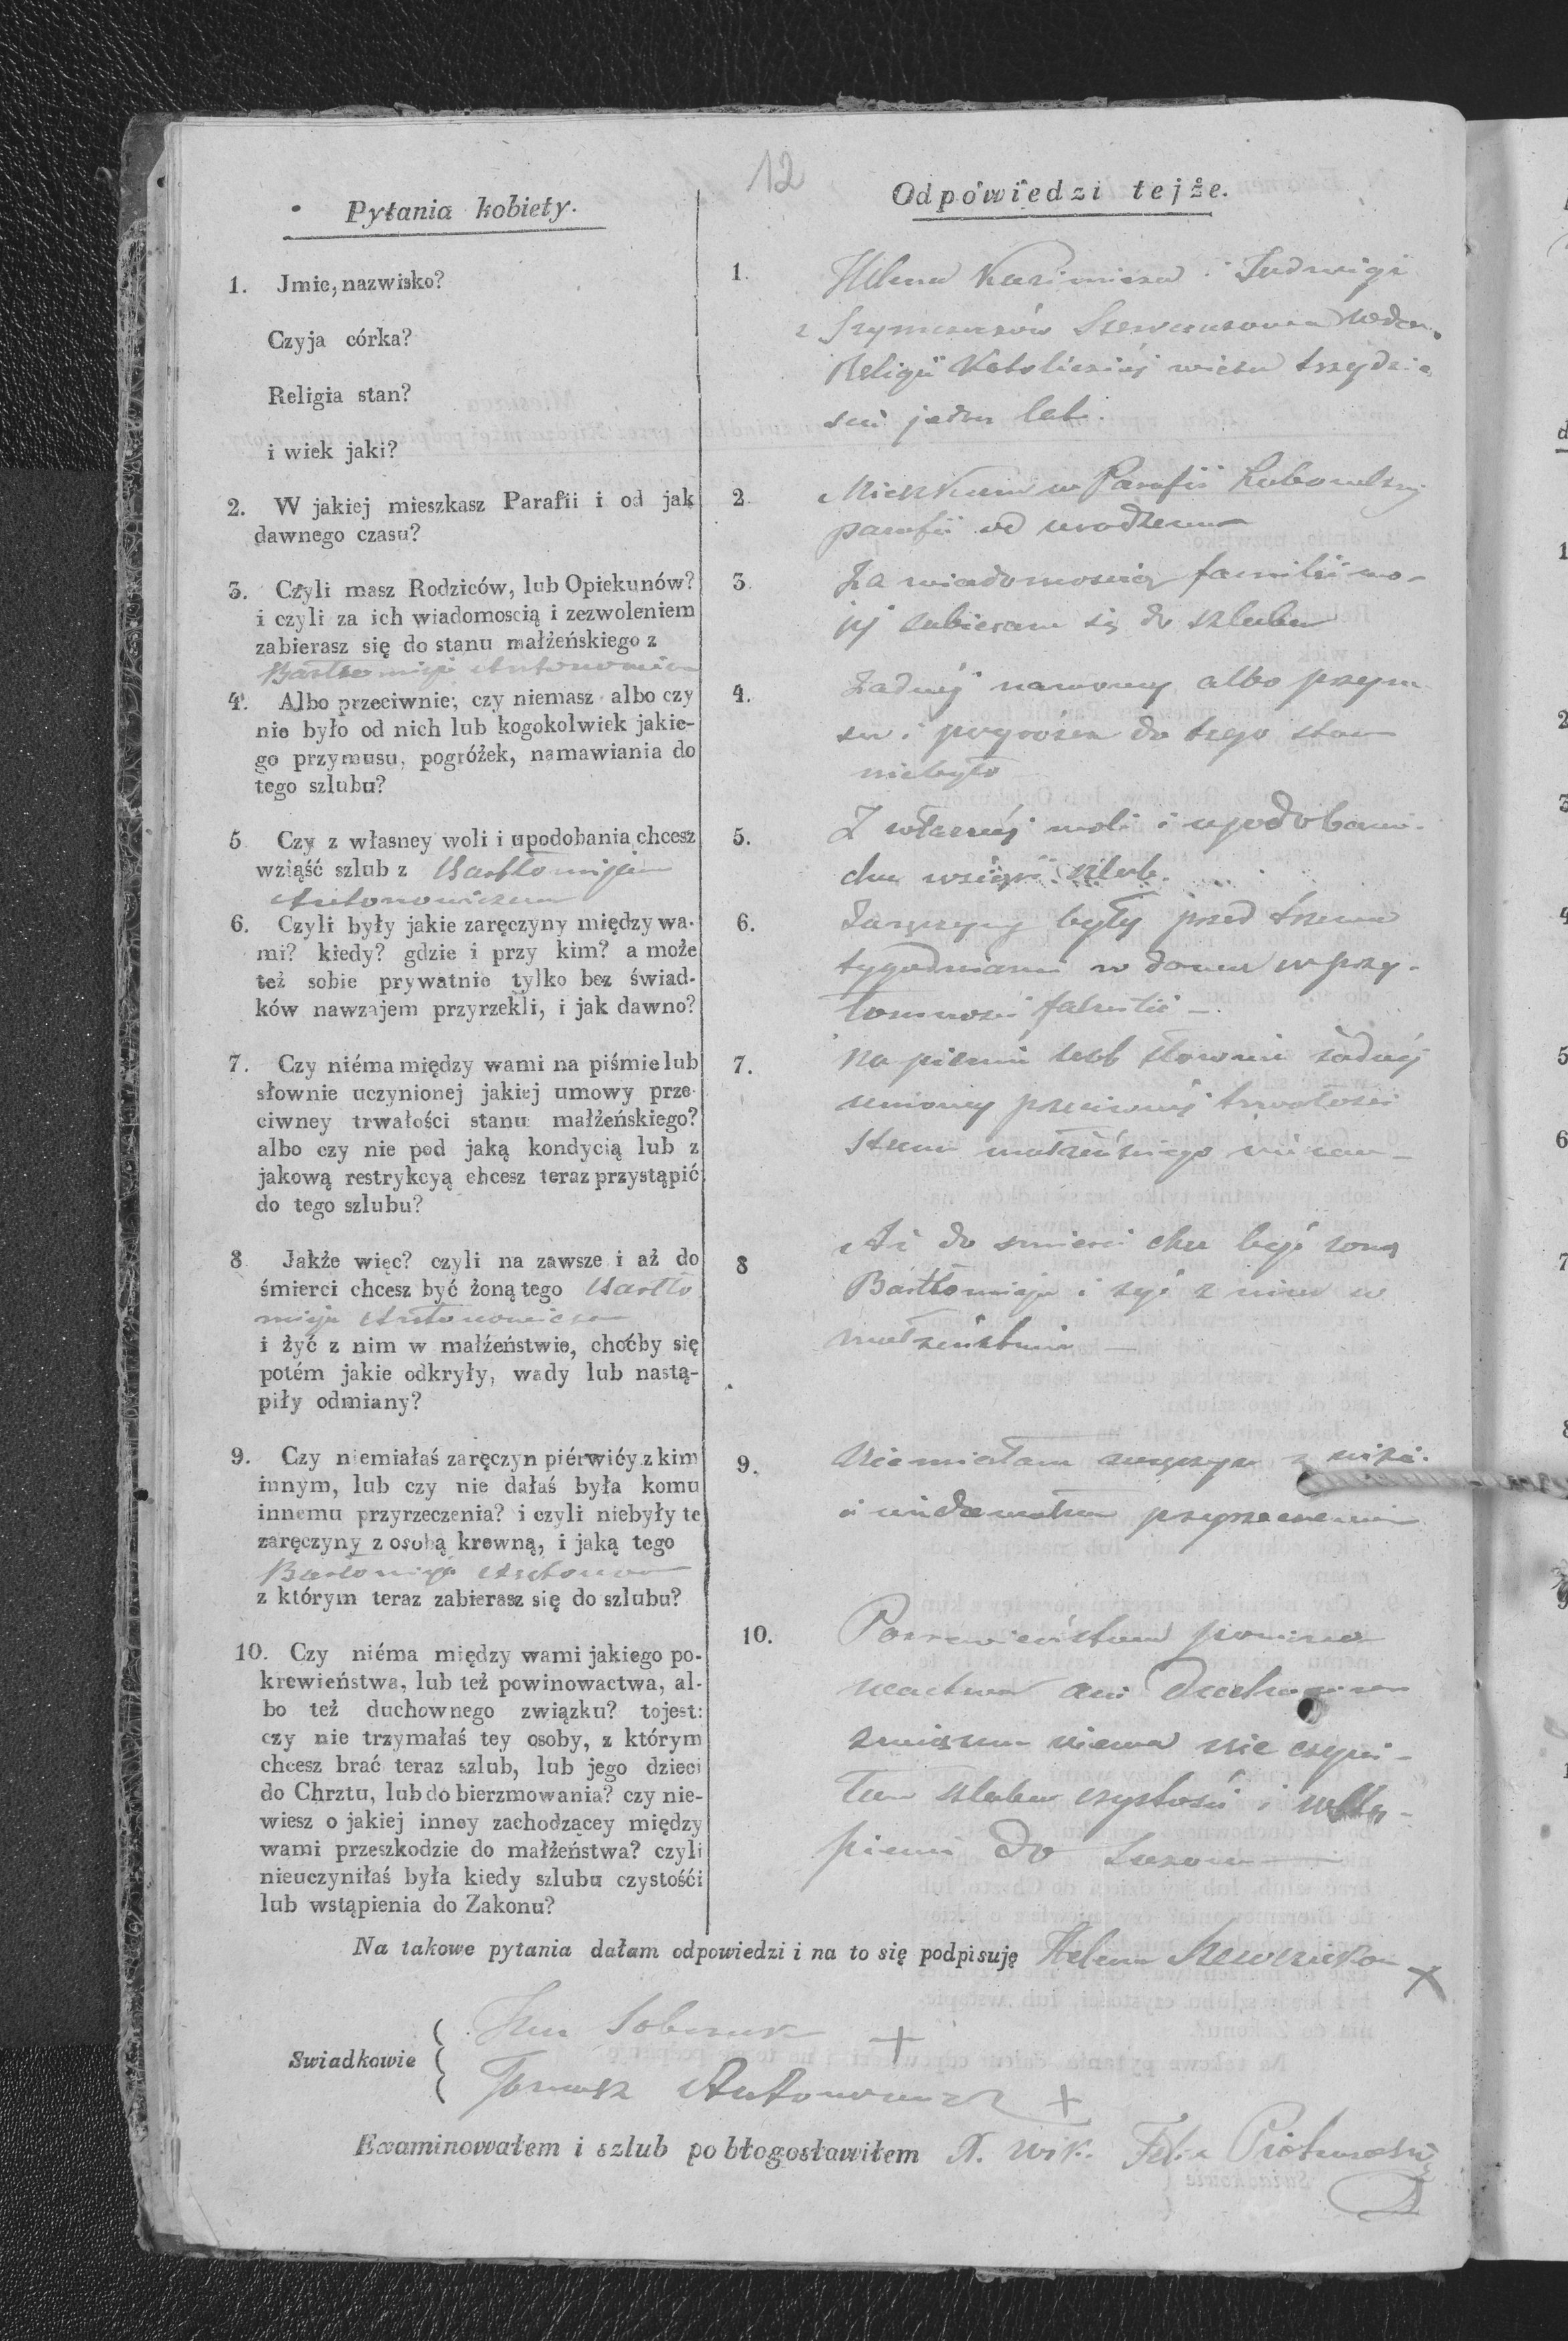 12
Pytania kobiety.
1. Jmie, nazwisko?
Czyja córka?
Religia stan?
i wiek jaki?
2. W jakiej mieszkasz Parafii i od jak
dawnego czasu?
3. Czyli masz Rodziców, lub Opiekunów?
i czyli za ich wiadomoscią i zezwoleniem
zabierasz się do stanu małżeńskiego z
4. Albo przeciwnie; czy niemasz albo czy
nie było od nich lub kogokolwiek jakie-
go przymusu, pogróżek, namawiania do
tego szlubu?
5 Czy z własney woli i upodobania chcesz
wziąść szlub z Bartłomijem
Antonowiczem
6. Czyli były jakie zaręczyny między wa-
mi? kiedy? gdzie i przy kim? a może
też sobie prywatnie tylko bez świad-
ków nawzajem przyrzekli, i jak dawno?
7. Czy niéma między wami na piśmie lub
słownie uczynionej jakiej umowy prze-
ciwney trwałości stanu małżeńskiego?
albo czy nie pod jaką kondycią lub z
jakową restrykcyą chcesz teraz przystąpić
do tego szlubu?
8 Jakże więc? czyli na zawsze i aż do
śmierci chcesz być żoną tego Bartło
mija Antonowicza
i żyć z nim w małżeństwie, choćby się
potém jakie odkryły, wady lub nastą-
piły odmiany?
9. Czy niemiałaś zaręczyn piérwićy z kim
innym, lub czy nie dałaś była komu
innemu przyrzeczenia? i czyli niebyły te
zaręczyny z osobą krewną, i jaką tego
z którym teraz zabierasz się do szlubu?
10. Czy niéma między wami jakiego po-
krewieństwa, lub też powinowactwa, al-
bo też duchownego związku? tojest:
czy nie trzymałaś tey osoby, z którym
chcesz brać teraz szlub, lub jego dzieci
do Chrztu, lub do bierzmowania? czy nie-
wiesz o jakiej inney zachodzącey między
wami przeszkodzie do małżeństwa? czyli
nieuczyniłaś była kiedy szlubu czystośći
lub wstąpienia do Zakonu?
Odpowiedzi tejże.
1. Helena Kazimierza i Ludwigi
z
Religii Katolickiej wieku trzydzie
sci jeden lat.
2. Mieszkam w Parafii
parafii od urodzenia
3. Za wiadomością familii mo-
jej zabieram się do szlubu
4. Żadnej namowy albo przym
su i pogróżek do tego stanu
niebyło
5. Z własnej woli i upodobania
chcę wziąść szlub.
6. Zaręczyny były przed trzema
tygodniami w domu w przy-
tomności familii —
7. na piśmie lub słownie żadnej
umowy przeciwnej trwałości
stanu małżeńskiego
8 Aż do śmierci chcę być żoną
Bartłomieja i żyć z nim w
małżeństwie —
9. Niemiałam zaręczyn z
i niedawałam przyrzeczenia
10. Pokrewieństwa powino
wactwa ani Duchownego
związku niema nie czyni-
łam szlubu czystości i wstą-
pienia do
Na takowe pytania dałam odpowiedzi i na to się podpisuję Helena +
Swiadkowie
Jan Sobczuk +
Tomasz Antonowicz +
Examinowałem i szlub pobłogosławiłem X. Wik. Felix